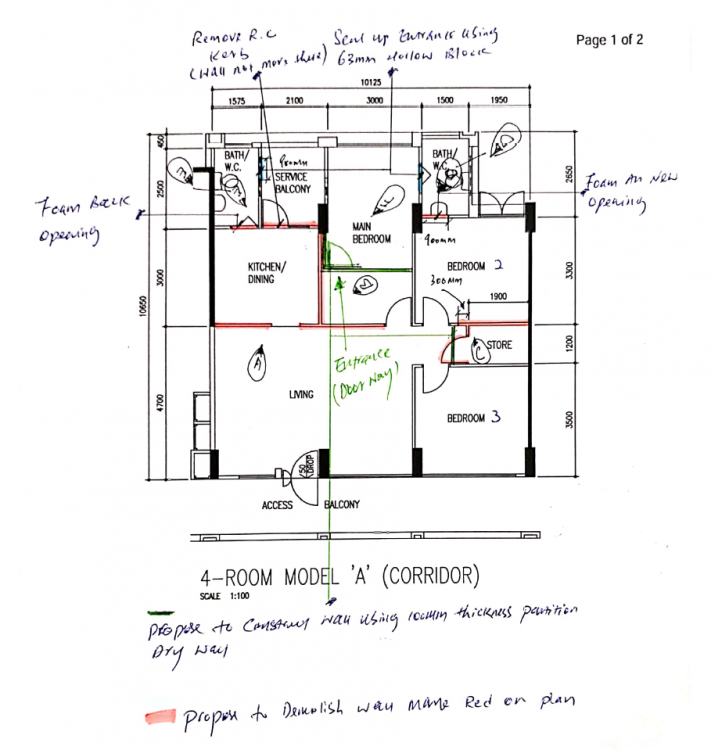 Page 1 of 2
Remove R.C
Kerb
(Wall not more there)
Seal up Entrance Using
63mm Hollow Block
10125
1575
2100
3000
1500
1950
450
2500
3000
4700
10650
2650
3300
1200
3500
BATH/
W.C.
900mm
SERVICE
BALCONY
BATH/
W.C.
Foam Back
Opening
Foam An New
Opening
MAIN
BEDROOM
900mm
KITCHEN/
DINING
BEDROOM 2
300mm
1900
D
A
C
STORE
Entrance
(Door way)
LIVING
BEDROOM 3
150
DROP
ACCESS BALCONY
4-ROOM MODEL 'A' (CORRIDOR)
SCALE 1:100
propose to Construct wall Using 100mm thickness partition
Dry wall
propose to Demolish wall Red on plan